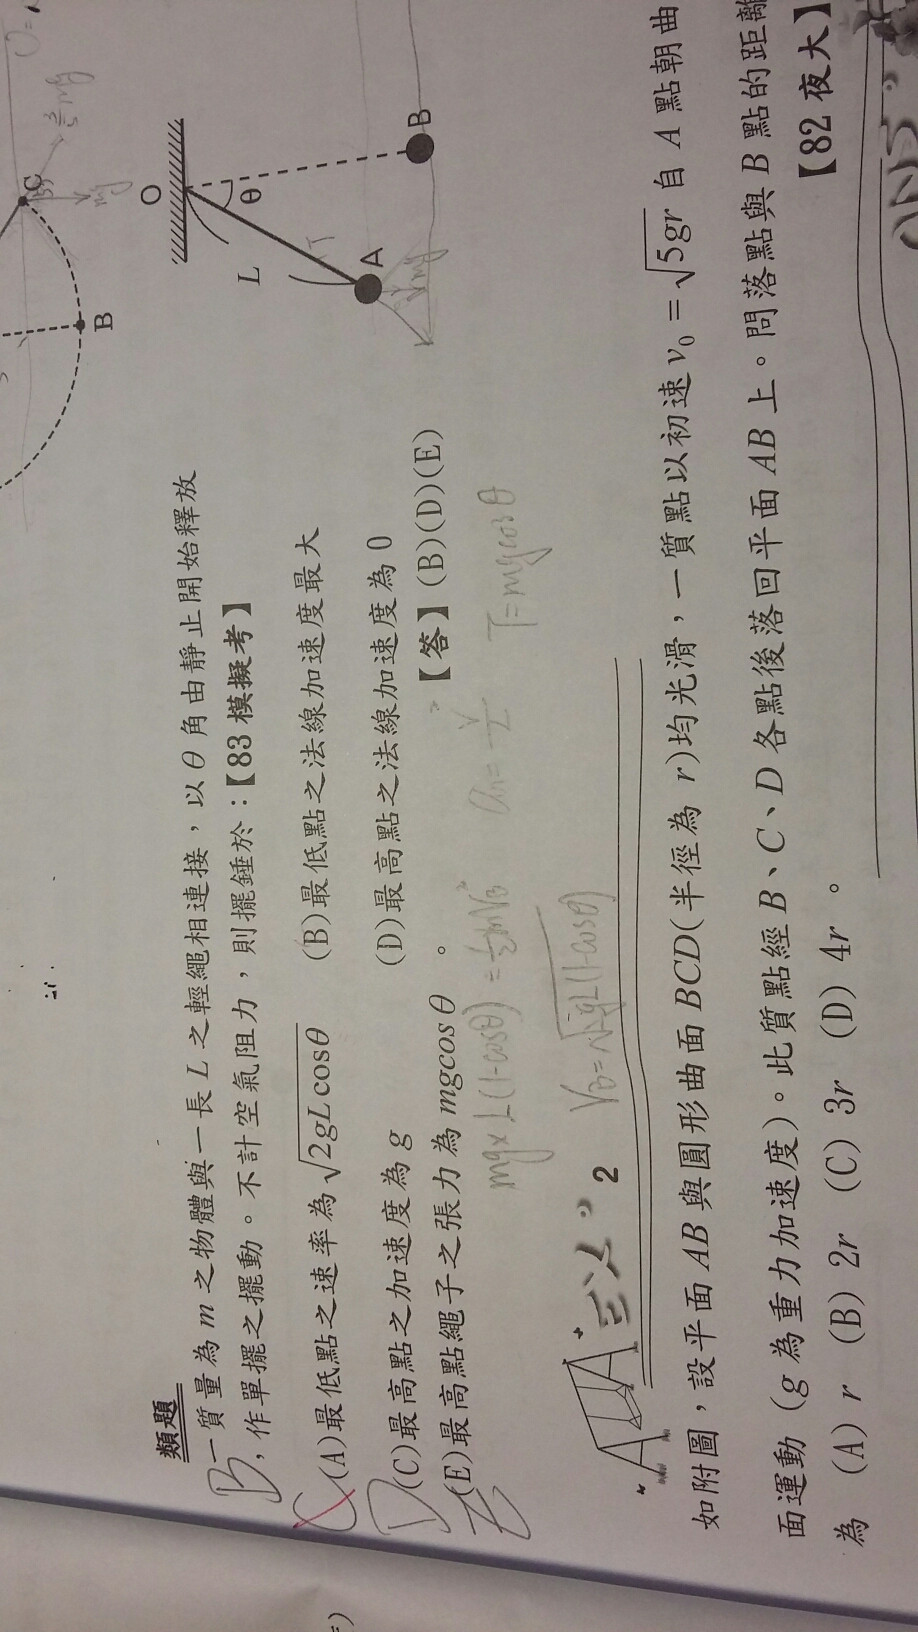 C
B
mg
O
L
θ
T
A
B
mg
類題
一質量為 m 之物體與一長 L 之輕繩相連接，以 θ 角由靜止開始釋放
，作單擺之擺動。不計空氣阻力，則擺錘於：【83 模擬考】
(A)最低點之速率為 √2gL cosθ (B)最低點之法線加速度最大
(C)最高點之加速度為 g (D)最高點之法線加速度為 0
(E)最高點繩子之張力為 mgcosθ 。 【答】(B)(D)(E)
B
C
D
E
mg×L(1-cosθ)=½mV_B²
V_B=√2gL(1-cosθ)
T=mgcosθ
2
如附圖，設平面 AB 與圓形曲面 BCD(半徑為 r)均光滑，一質點以初速 v₀ = √5gr 自 A 點朝曲
面運動（g 為重力加速度）。此質點經 B、C、D 各點後落回平面 AB 上。問落點與 B 點的距離
為 (A) r (B) 2r (C) 3r (D) 4r 。 【82 夜大】